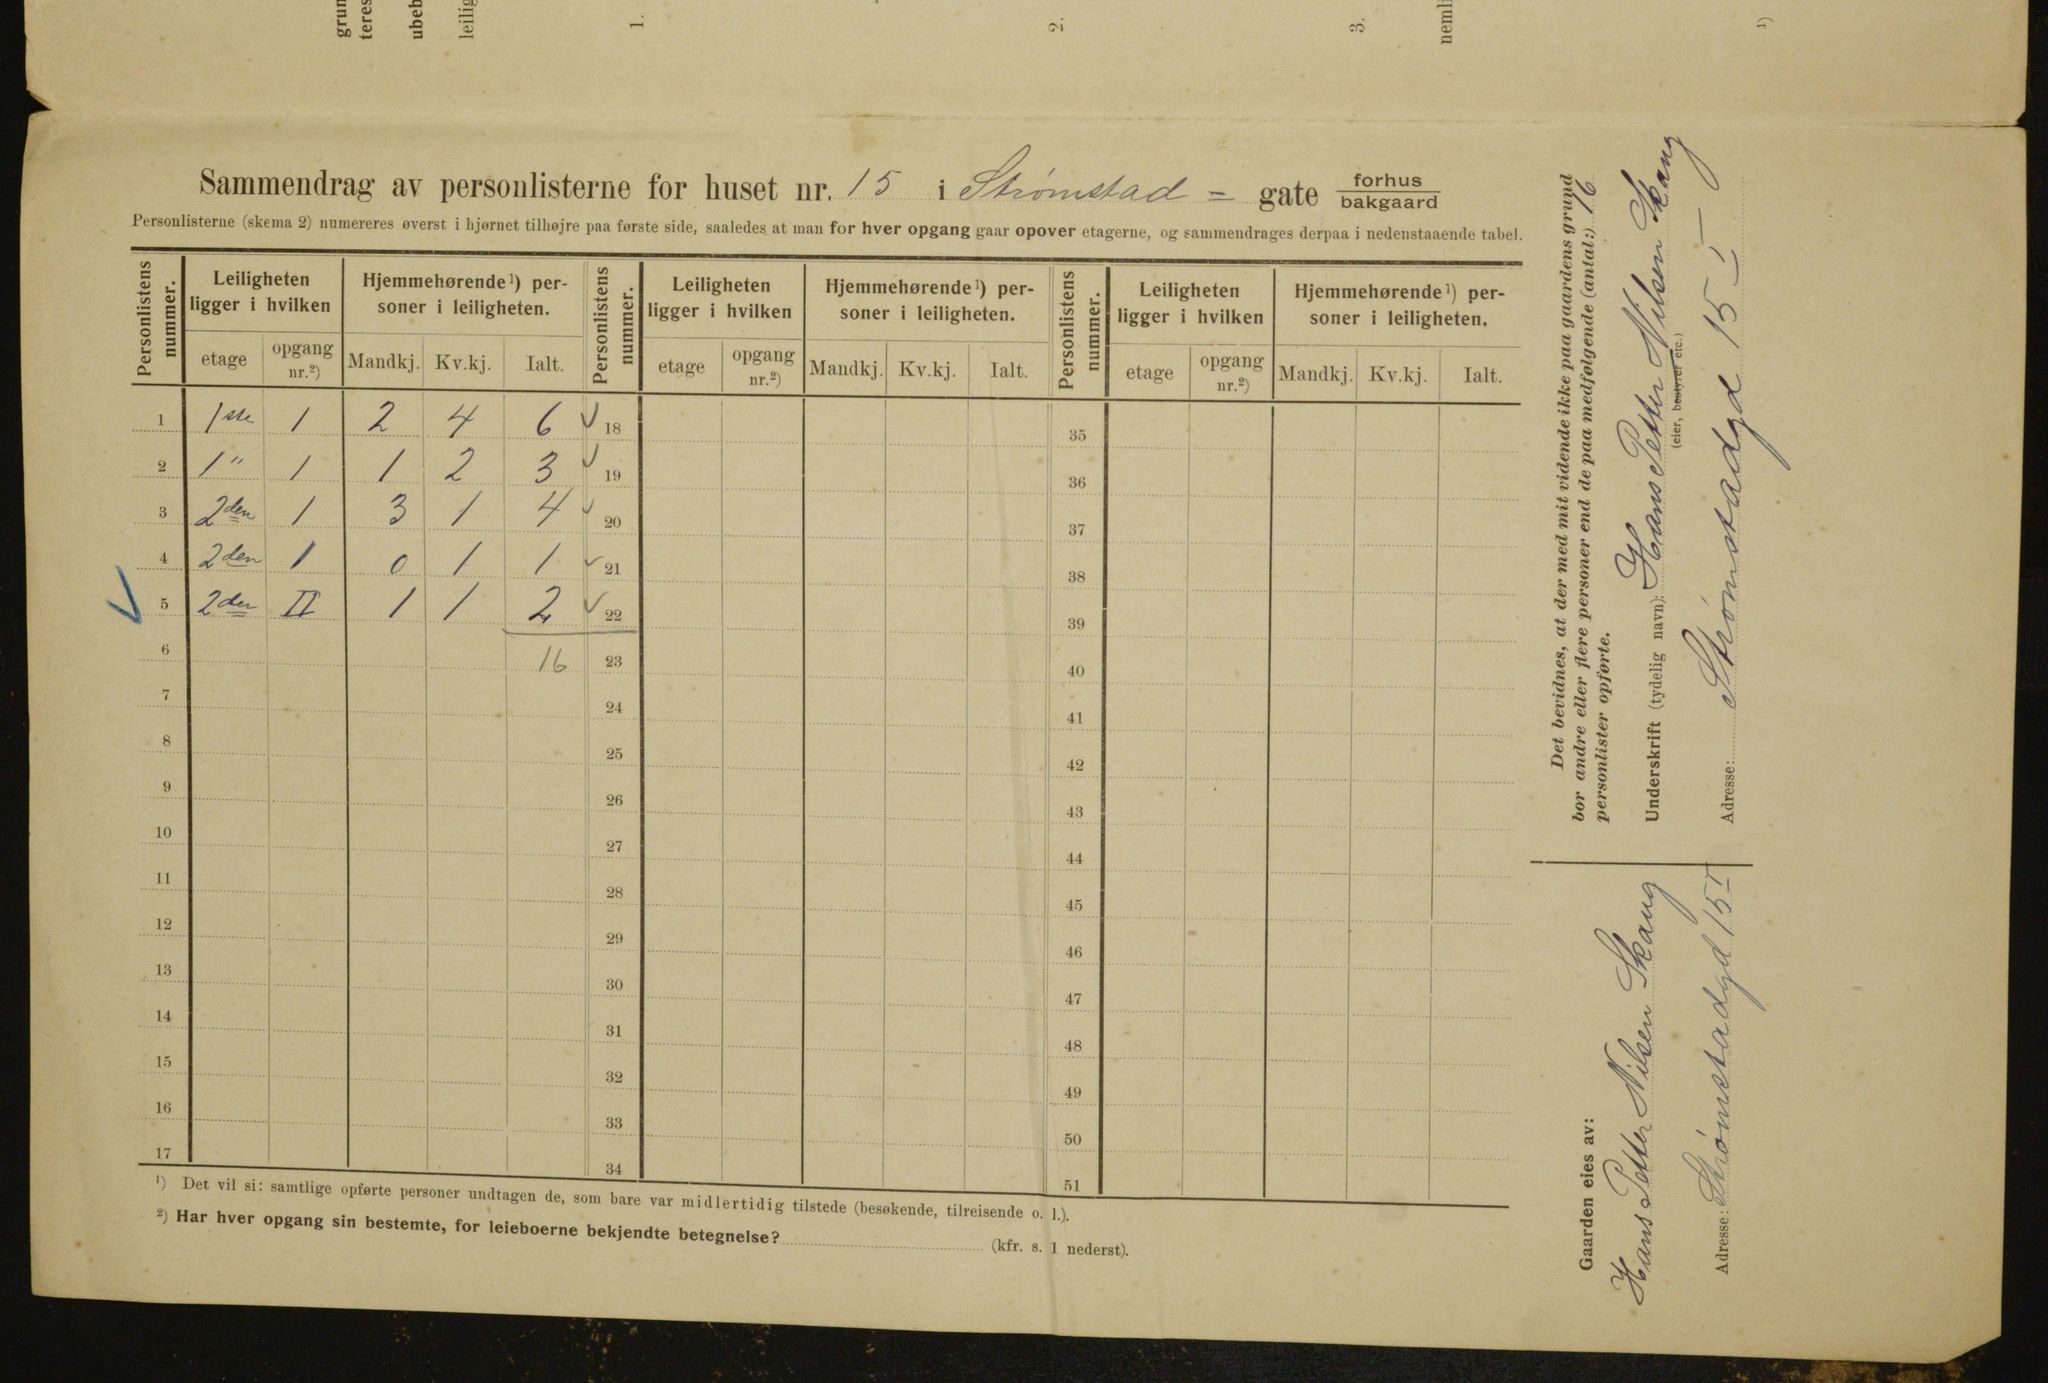 grun
teres
ubeb
leilig
1.
2.
3.
nemli
1)
Sammendrag av personlisterne for huset nr. 15 i Strømstad = gate forhus
bakgaard
Personlisterne (skema 2) numereres øverst i hjørnet tilhøjre paa første side, saaledes at man for hver opgang gaar opover etagerne, og sammendrages derpaa i nedenstaaende tabel.
Personlistens nummer. Leiligheten ligger i hvilken Hjemmehørende 1) personer i leiligheten. Personlistens nummer. Leiligheten ligger i hvilken Hjemmehørende 1) personer i leiligheten. Personlistens nummer. Leiligheten ligger i hvilken Hjemmehørende 1) personer i leiligheten.
etage opgang nr.2) Mandkj. Kv.kj. Ialt. etage opgang nr.2) Mandkj. Kv.kj. Ialt. etage opgang nr.2) Mandkj. Kv.kj. Ialt.
1 1ste 1 2 4 6 18 35
2 1 " 1 1 2 3 19 36
3 2den 1 3 1 4 20 37
4 2den 1 0 1 1 21 38
5 2den II 1 1 2 22 39
6 16 23 40
7 24 41
8 25 42
9 26 43
10 27 44
11 28 45
12 29 46
13 30 47
14 31 48
15 32 49
16 33 50
17 34 51
1) Det vil si: samtlige opførte personer undtagen de, som bare var midlertidig tilstede (besøkende, tilreisende o. l.).
2) Har hver opgang sin bestemte, for leieboerne bekjendte betegnelse? (kfr. s. 1 nederst).
Det bevidnes, at der med mit vidende ikke paa gaardens grund
bor andre eller flere personer end de paa medfølgende (antal:) 16
personlister opførte.
Underskrift (tydelig navn): Hans Petter Nilsen Skaug
(eier, bestyrer etc.)
Adresse: Strømstadgd 15 I
Gaarden eies av:
Hans Petter Nilsen Skaug
Adresse: Strømstadgd 15 I